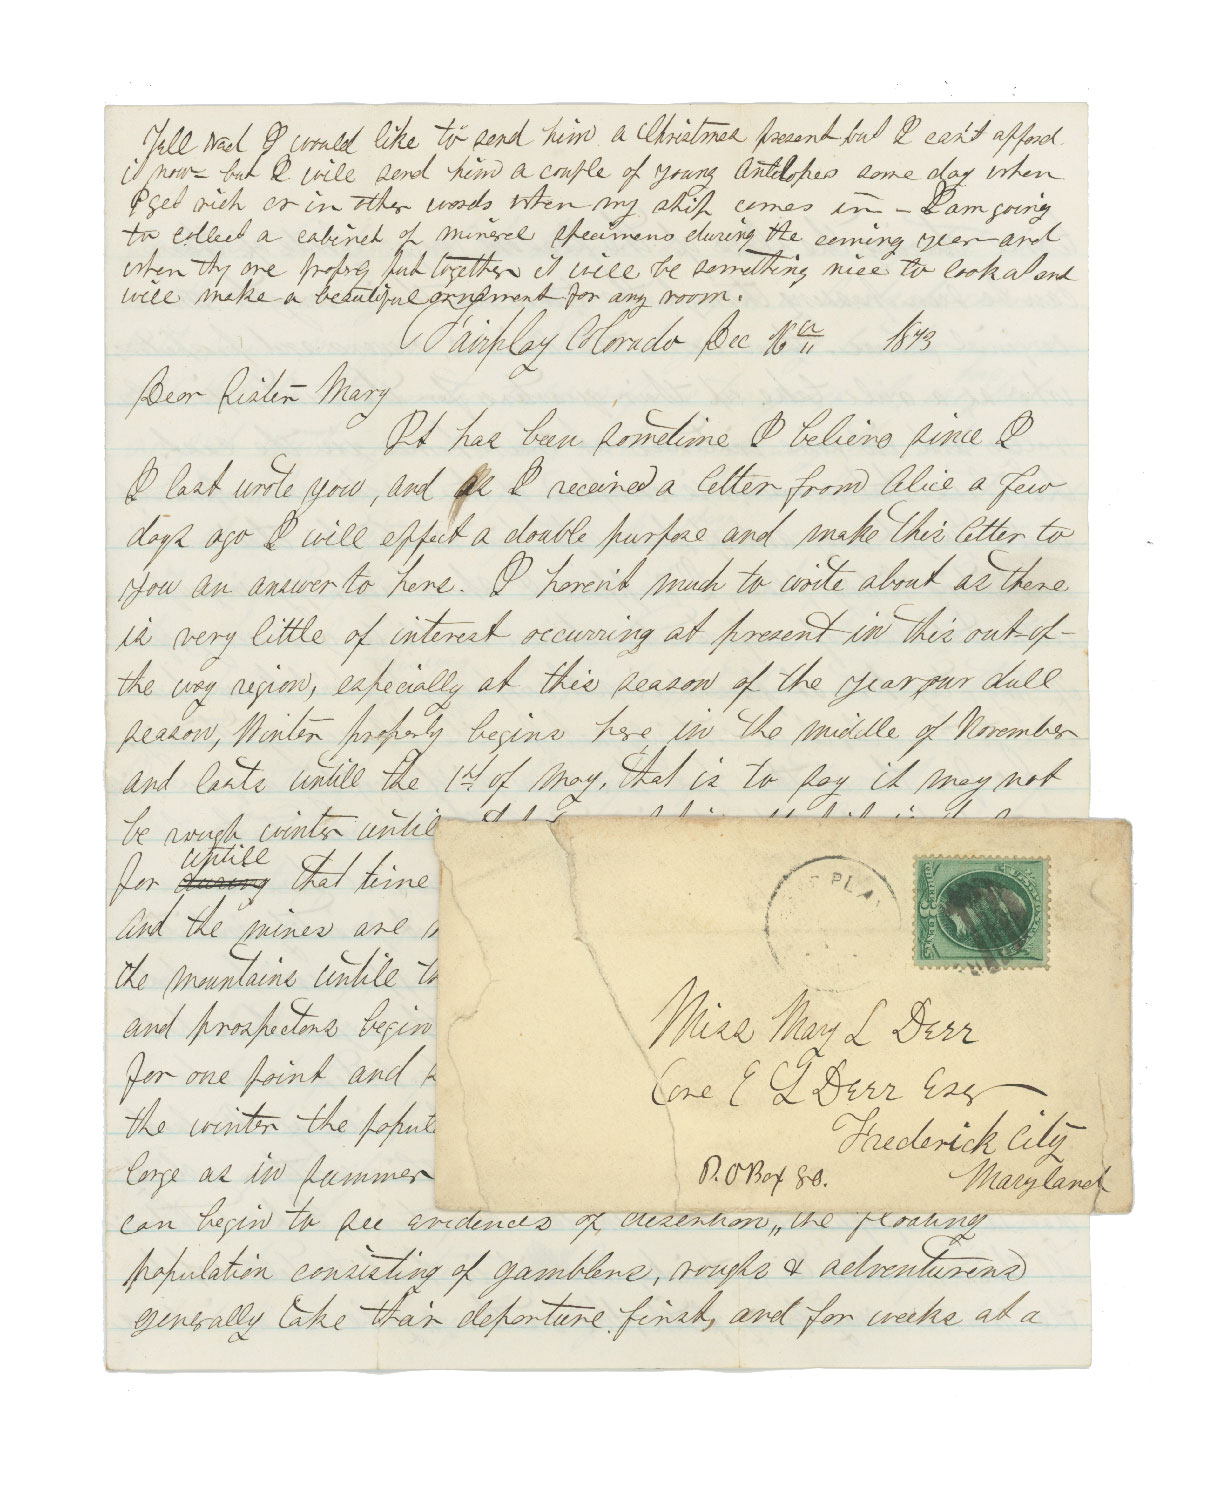 Tell Dad I would like to send him a Christmas present but I can't afford
it now = but I will send him a couple of young Antilopes some day when
I get rich or in other words when my ship comes in – I am going
to collect a cabinet of mineral specimens during the coming year – and
when thy are properly put together it will be something nice to look at and
will make a beautiful ornament for any room.
Fairplay Colorado Dec 1873
Dear Sister Mary
It has been sometime I believe since I
I last wrote you, and as I received a letter from Alice a few
days ago I will effect a double purpose and make this letter to
you an answer to hers. I haven't much to write about as there
is very little of interest occurring at present in this out-of-
the way region, especially at this season of the year our dull
season, Winter properly begins here in the middle of November
and lasts untill the 1st of May, that is to say it may not
be rough winter untill
untill
for during that time
And the mines are
the mountains untill
and prospectors begin
for one point and
the winter the
large as in summer
can begin to see evidences of desertion, the floating
population consisting of gamblers, roughs & adventurers
generally take thair departure first, and for weeks at a
PLA
Miss Mary L Derr
Care E L Derr Esq
Frederick City
P.O Box 80.
Maryland